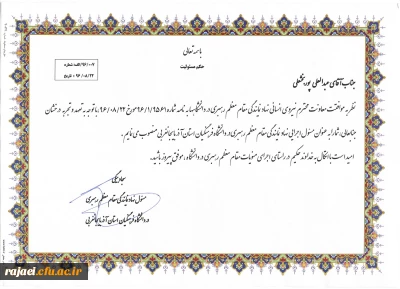 باسمه تعالی
حکم مسئولیت
۹۶/۰۰۷/الف شماره
۹۶/۰۸/۲۲ : تاریخ
جناب آقای عبدالعلی پورتشلی
نظر به موافقت معاونت محترم نیروی انسانی نهاد نمایندگی مقام معظم رهبری در دانشگاهها به نامه شماره ۹۶/۱/۹۵۶۱ مورخ ۹۶/۰۸/۲۲ با توجه به تعهد و تجربه درخشان
جنابعالی، شما را به عنوان مسئول اجرایی نهاد نمایندگی مقام معظم رهبری در دانشگاه فرهنگیان استان آذربایجانغربی منصوب می نمایم.
امید است با اتکال به خداوند حکیم در راستای اجرای منویات مقام معظم رهبری در دانشگاه، موفق و پیروز باشید.
مسئول نهاد نمایندگی مقام معظم رهبری
در دانشگاه فرهنگیان استان آذربایجانغربی
rajaei.cfu.ac.ir